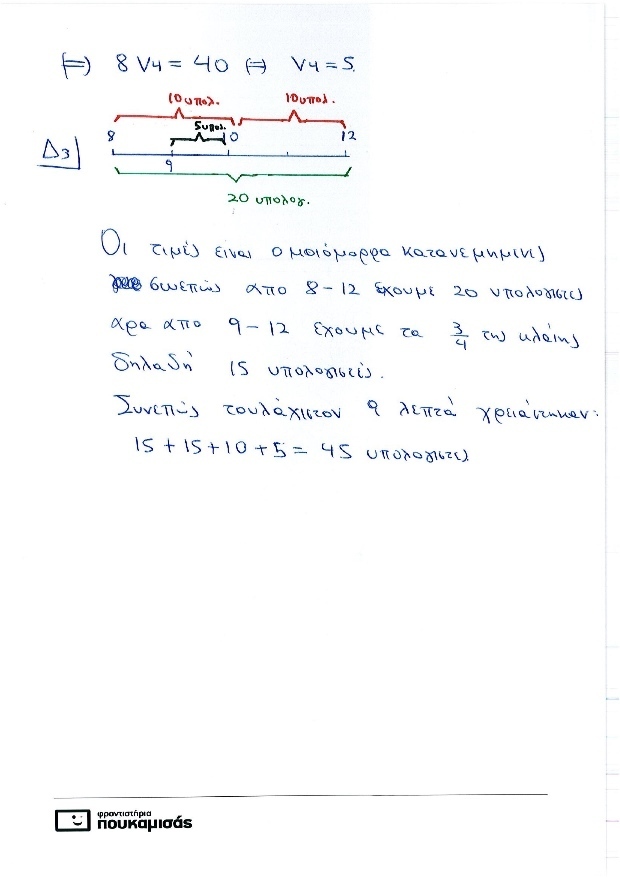 ⇔ 8 V4 = 40 ⇔ V4 = 5.
10 υπολ. 10 υπολ.
5 υπολ.
8 10 12
Δ3
9
20 υπολογ.
Οι τιμές είναι ομοιόμορφα κατανεμημένες
συνεπώς απο 8 - 12 έχουμε 20 υπολογιστές
αρα απο 9 - 12 έχουμε τα 3/4 της κλάσης
δηλαδή 15 υπολογιστές.
Συνεπώς τουλάχιστον 9 λεπτά χρειάστηκαν:
15 + 15 + 10 + 5 = 45 υπολογιστές
φροντιστήρια
πουκαμισάς